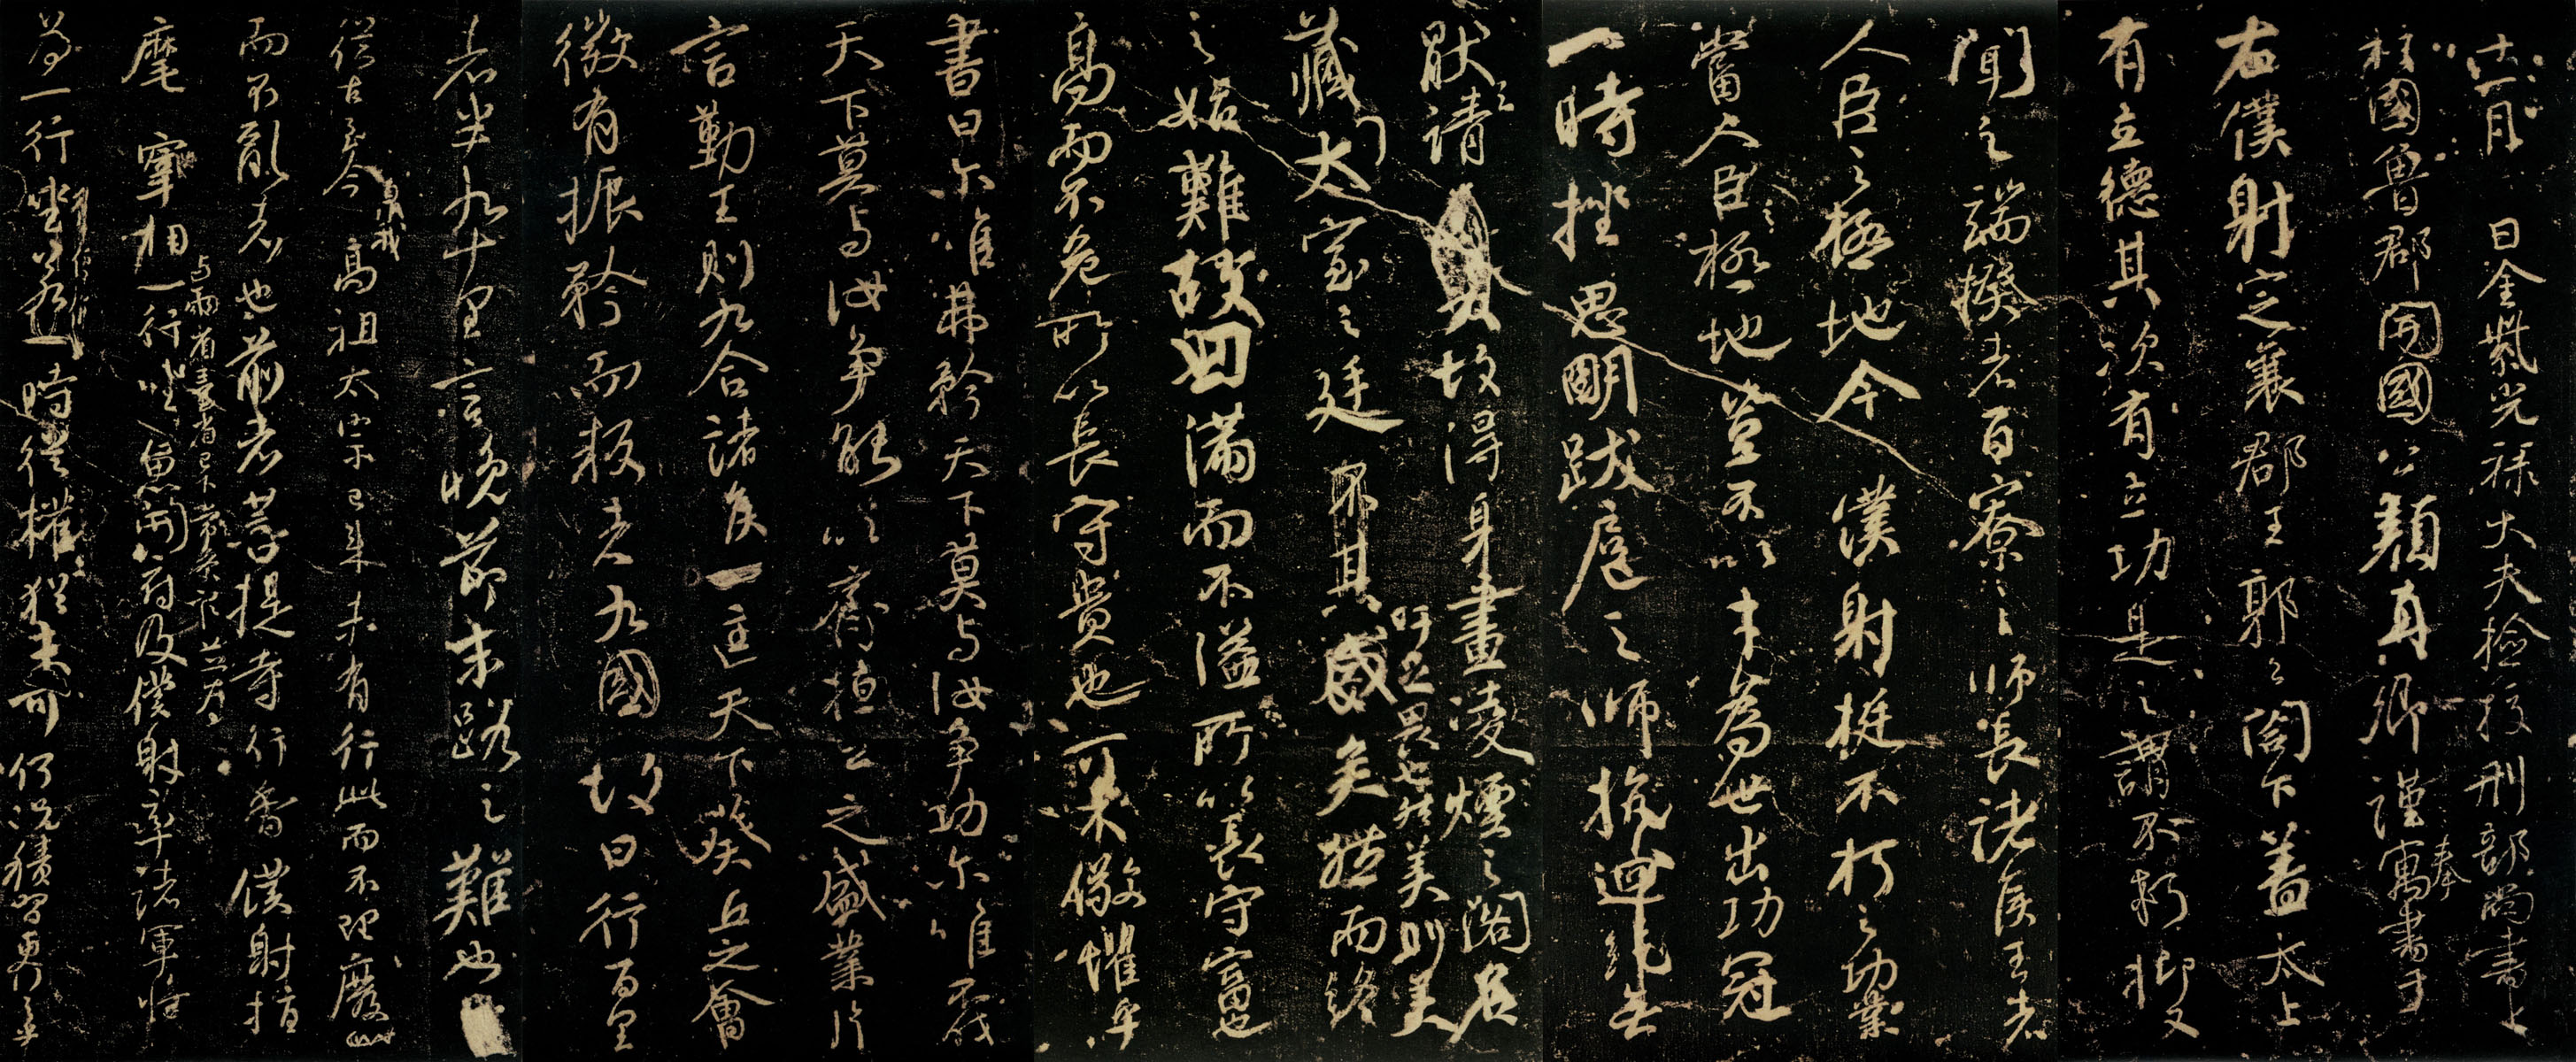 十一月 日金紫光禄大夫檢校刑部尚書上
柱國魯郡開國公顔真卿謹奉寓書于
右僕射定襄郡王郭公閤下蓋太上
有立德其次有立功是之謂不朽抑又
聞之端揆者百寮之師長諸侯王者
人臣之極地今僕射挺不朽之功業
當人臣之極地豈不以才為世出功冠
一時挫思明跋扈之師抗迴紇無
厭之請故得身畫凌煙之閣名
藏太室之廷
吁足畏也然美則美
矣然而終
之始難故曰滿而不溢所以長守富也
高而不危所以長守貴也可不儆懼乎
書曰尔唯弗矜天下莫与汝爭功尔唯不伐
天下莫与汝爭能以齊桓公之盛業片
言勤王則九合諸侯一匡天下葵丘之會
微有振矜而叛者九國故曰行百里
者半九十里言晚節末路之難也
從古至今暨我高祖太宗已來未有行此而不理廢此
而不亂者也前者菩提寺行香僕射指
麾宰相与兩省臺省已下常參官並為一行坐魚開府及僕射率諸軍將
為一行坐若一時從權猶未可何況積習更行之乎